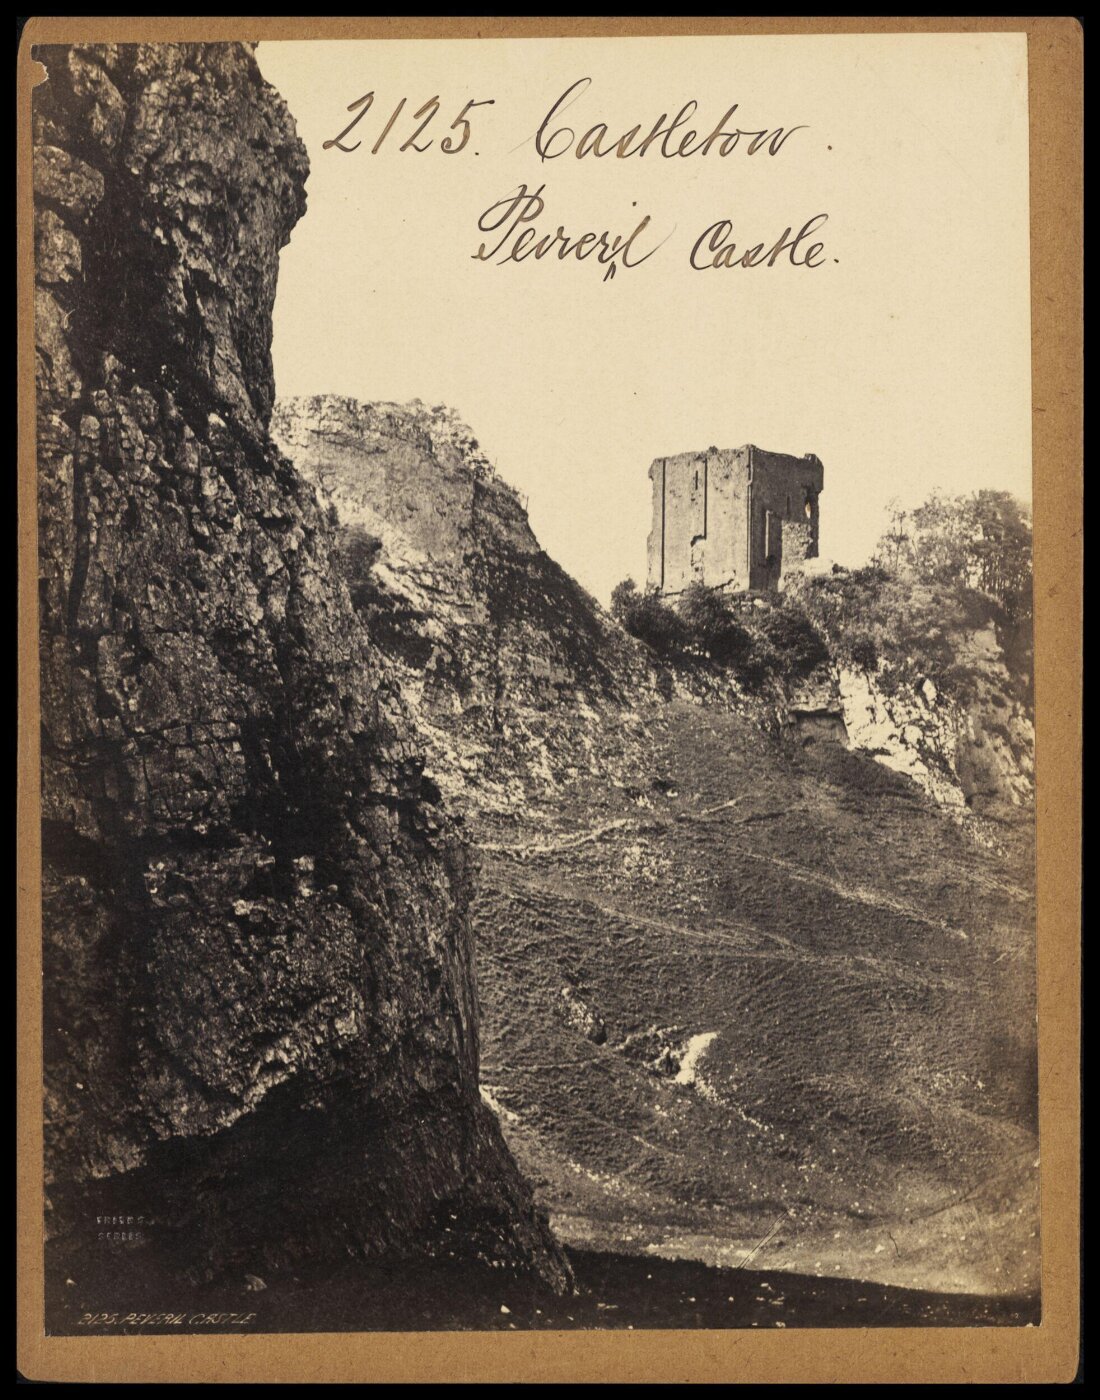 2125. Castleton.
Peveril Castle.
FRITH'S
SERIES
2125. PEVERIL CASTLE